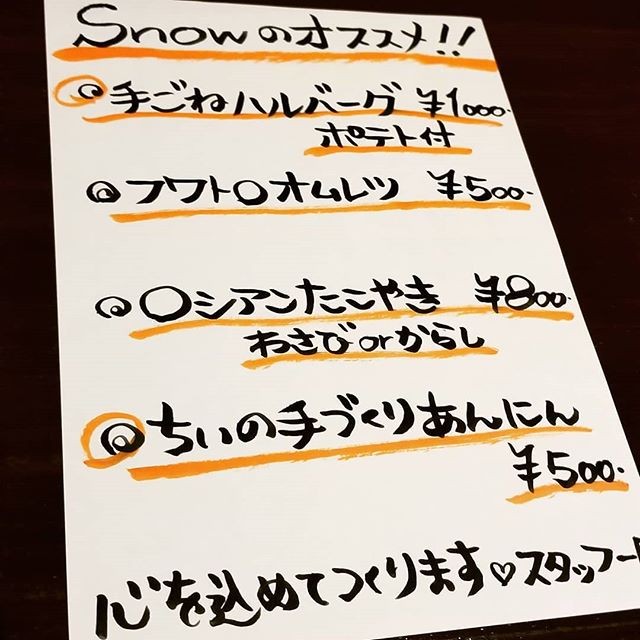 Snowのオススメ!!
手ごねハルバーグ ¥1000.
ポテト付
フワト〇オムレツ ¥500.
〇シアンたこやき ¥800.
わさびorからし
ちいの手づくりあんにん
¥500.
心を込めてつくります♡スタッフ一同